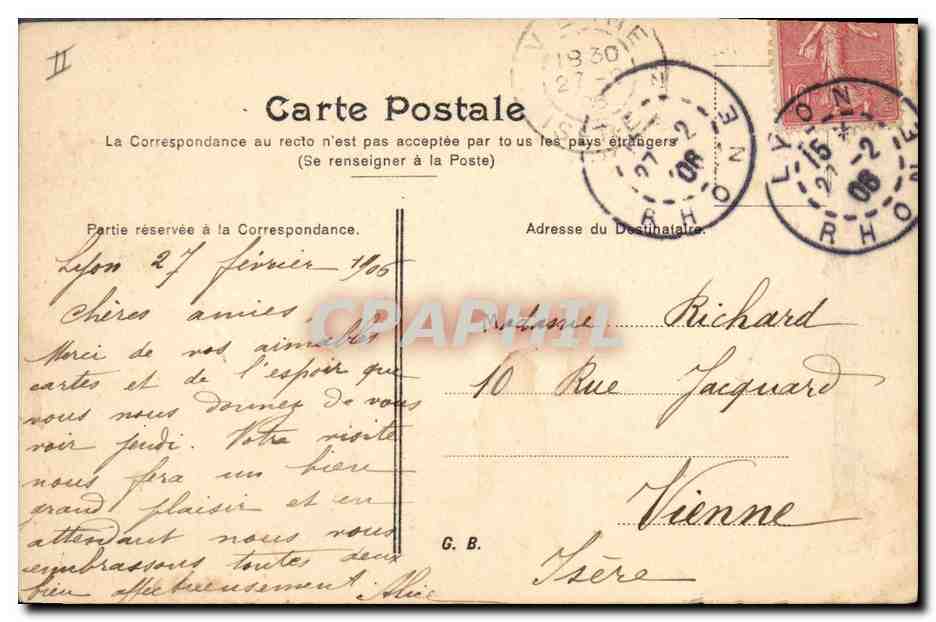 II
Carte Postale
La Correspondance au recto n'est pas acceptée par tous les pays étrangers
(Se renseigner à la Poste)
VIENNE
ISÈRE
18 30
27
RHONE
27 -2
06
LYON
RHONE
15
27 -2
06
Partie réservée à la Correspondance.
Lyon 27 février 1906
Chères amies
Merci de vos aimables
cartes et de l'espoir que
vous nous donnez de vous
voir jeudi. Votre visite
nous fera un bien
grand plaisir et en
attendant nous vous
embrassons toutes deux
bien affectueusement. Alice
Adresse du Destinataire.
Madame Richard
10 Rue Jacquard
Vienne
Isère
G. B.
CPAPHIL